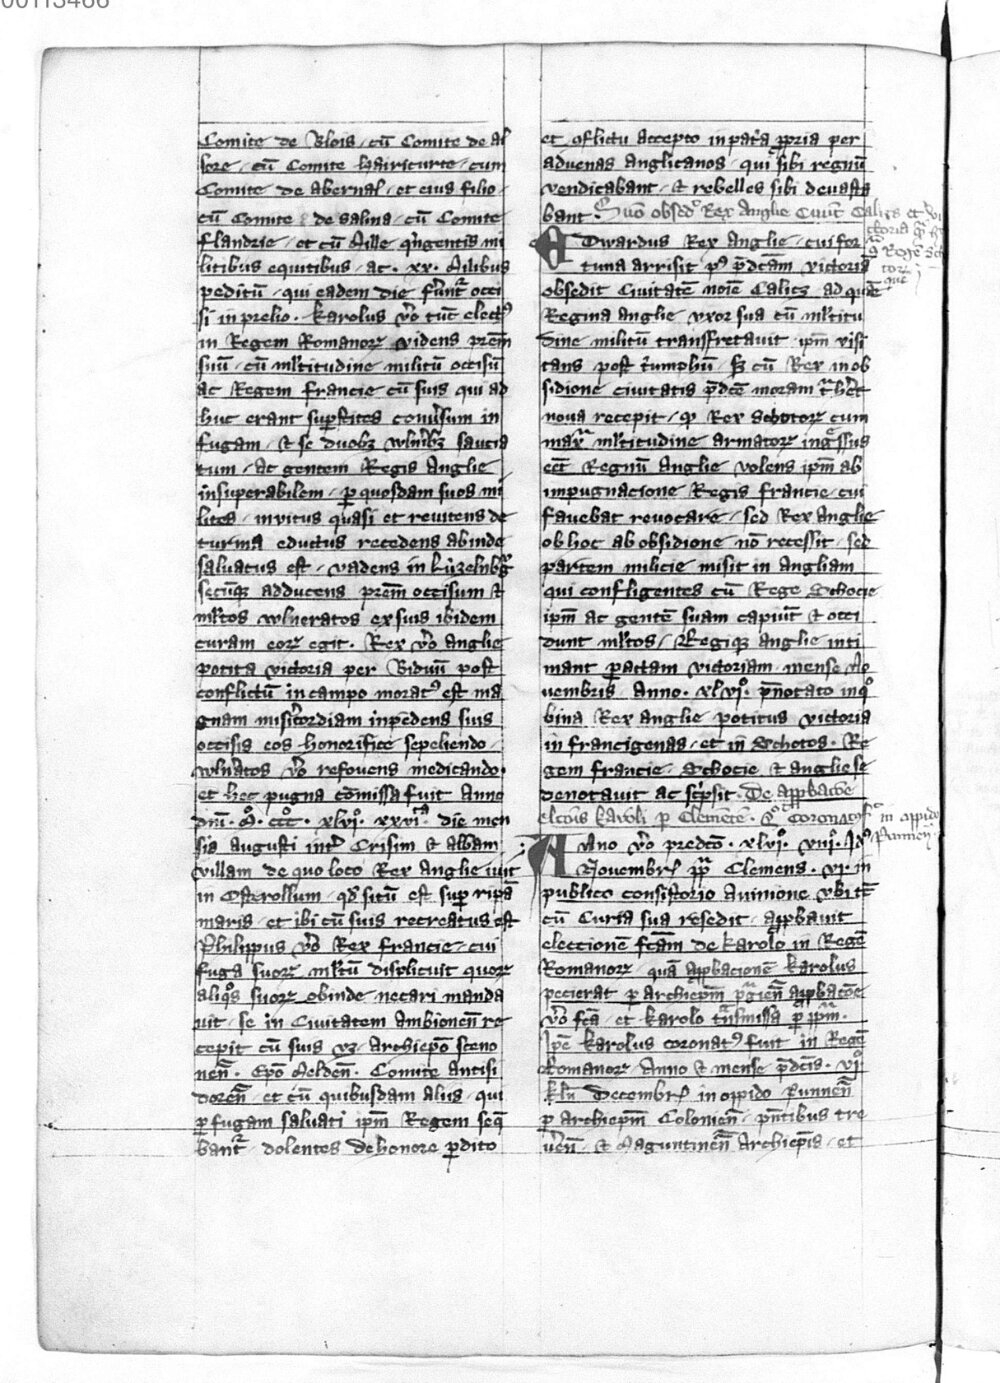 Comite de Blois · cũ Comite de al
sore · cũ Comite hairicurte · cum
Comite de abernal · et eius filio ·
cũ Comite de salina · cũ Comite
flandrie · et cũ Mille qͥngentis mi
litibus equitibus · ac · xx · Milibus
peditũ · qui eadem die fuͤnt occi
si in prelio · karolus vͦo tũc elects
in Regem Romanoꝝ videns prem̃
suũ · cũ ml̃titudine militũ occisũ
ac Regem francie cũ suis qui ad
huc erant suꝑstites conuͥsum in
fugam · et se duobꝫ wln̾ibꝫ saucia
tum · ac gentem Regis Anglie
insuperabilem · ꝑ quosdam suos mi
lites · inuitus quasi et renitens de
turma eductus recedens abinde
saluatus est · vadens in luͦzelnbg̾
secũqꝫ adducens prem̃ occisum et
ml̃tos wlneratos ex suis ibidem
curam eoꝝ egit · Rex vͦo anglie
potita victoria per biduũ post
conflictũ in campo morats est ma
gnam miscͥordiam inpẽdens suis
occisis eos honorifice sepeliendo ·
wln̾atos vͦo refouens medicando ·
et hec pugna cõmissa fuit Anno
dnĩ · Mͦ · cccͦ · xlviͦ · xxviᵗᵃ die men
sis augusti int̾ Crisim et albam
villam de quo loco Rex Anglie iuit
in Osterollum · qd̾ situ̅ est suꝑ ripã
maris · et ibi cũ suis recreatus est
Philippus vͦo Rex francie · cui
fuga suoꝝ ml̃tũ displicuit quoꝝ
aliqͦs suoꝝ obinde necari manda
uit · se in Ciuitatem Ambionen̅ re
cepit cũ suis vꝫ · Archiep̃o sceno
nen̅ · Ep̃o Melden̅ · Comite Antisi
doren̅ · et cũ quibusdam aliis · qui
ꝑ fugam saluati ip̃m Regem seq̃
bant̾ · dolentes de honore ꝑdito
et ꝯflictu accepto in pat̾a ꝓpria per
aduenas anglicanos · qui sibi regnũ
vendicabant · et rebelles sibi deuasta
bant · Quo obsed̾ Rex Anglie Ciuit̾ Calits et vi
ctoria
Edwardus Rex Anglie · cui for
tuna arrisit pꝰ p̃dc̃am victoriã
obsedit Ciuitatẽ noiẽ Calicz ad quãᵉ
Regina anglie vxor sua cũ ml̃titu
dine militũ transfretauit · ip̃m visi
tans post t̾umphũ · sꝫ cũ Rex in ob
sidione ciuitatis p̃dc̃e moram t̾het̾
noua recepit · qꝫ Rex Schotoꝝ cum
max̃ ml̃titudine armatoꝝ ing̾ssus
eẽt Regnũ Anglie volens ip̃m ab
impugnacione Regis francie · cui
fauebat reuocare · sed Rex anglie
ob hoc ab obsidione nõ recessit · sed
partem milicie misit in Angliam
qui confligentes cũ Rege Schocie
ip̃m ac gentẽ suam capiũt et occi
dunt ml̃tos / Regiqꝫ anglie inti
mant ꝑactam victoriam · mense No
uembris Anno · xlviͦ · p̃notato in qͦ
bina Rex anglie potitus victoria
in francigenas · et in Schotos · Re
gem francie · Schocie et anglie se
denotauit ac scͥpsit · De appbacõe
elc̃ois karoli ꝑ Clementẽ · et coronacõe in opido
Anno vͦo predc̃o · xlviͦ · viiiͦ · Idꝰ
Nouembr̾ pp̃ Clemens · vi · in
publico consistorio Auinione vbi tc̃
cũ Curia sua resedit · appbauit
eleccionẽ fc̃am de karolo in Regẽ
Romanoꝝ · quã appbacionẽ karolus
pecierat ꝑ archiep̃m p̃gien̅ appbacõe
vͦo fc̃a · et karolo t̾nsmissa ꝑ pp̃m ·
Ip̃e karolus coronatꝰ fuit in Regẽ
Romanoꝝ Anno et mense p̃dc̃is · viͦ ·
kln̅ decembr̾ in oppido Runnen̅
ꝑ archiep̃m Colonien̅ · p̃ntibus tre
uͥen̅ · et Maguntinen̅ Archiep̃is · et